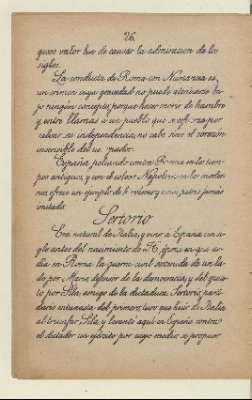 26
gusoso valor ha de causar la admiracion de los
siglos.
La conducta de Roma con Numancia es,
un crimen cuya gravedad no puede atenuarse ba-
jo ningún concepto, porque hacer morir de hambre
y entre llamas a un pueblo que se esfuerza por
salvar su independencia, no cabe mas el corazón
insensible del usurpador.
España, peleando contra Roma en los tiem-
pos antiguos, y con el coloso Napoleon en los moder-
nos, ofrece un ejemplo de heroismo y amor patrio jamás
imitado.
Sertorio
Era natural de Italia, y vino a España un si-
glo antes del nacimiento de J.C. época en que ar-
dia en Roma la guerra civil sostenida de un la-
do por Mario, defensor de la democracia, y del opues-
to por Sila, amigo de la dictadura. Sertorio, parti-
dario entusiasta del primero, tuvo que huir de Italia
al triunfar Sila, y levantó aquí en España contra
el dictador un ejército por cuyo medio se propuso